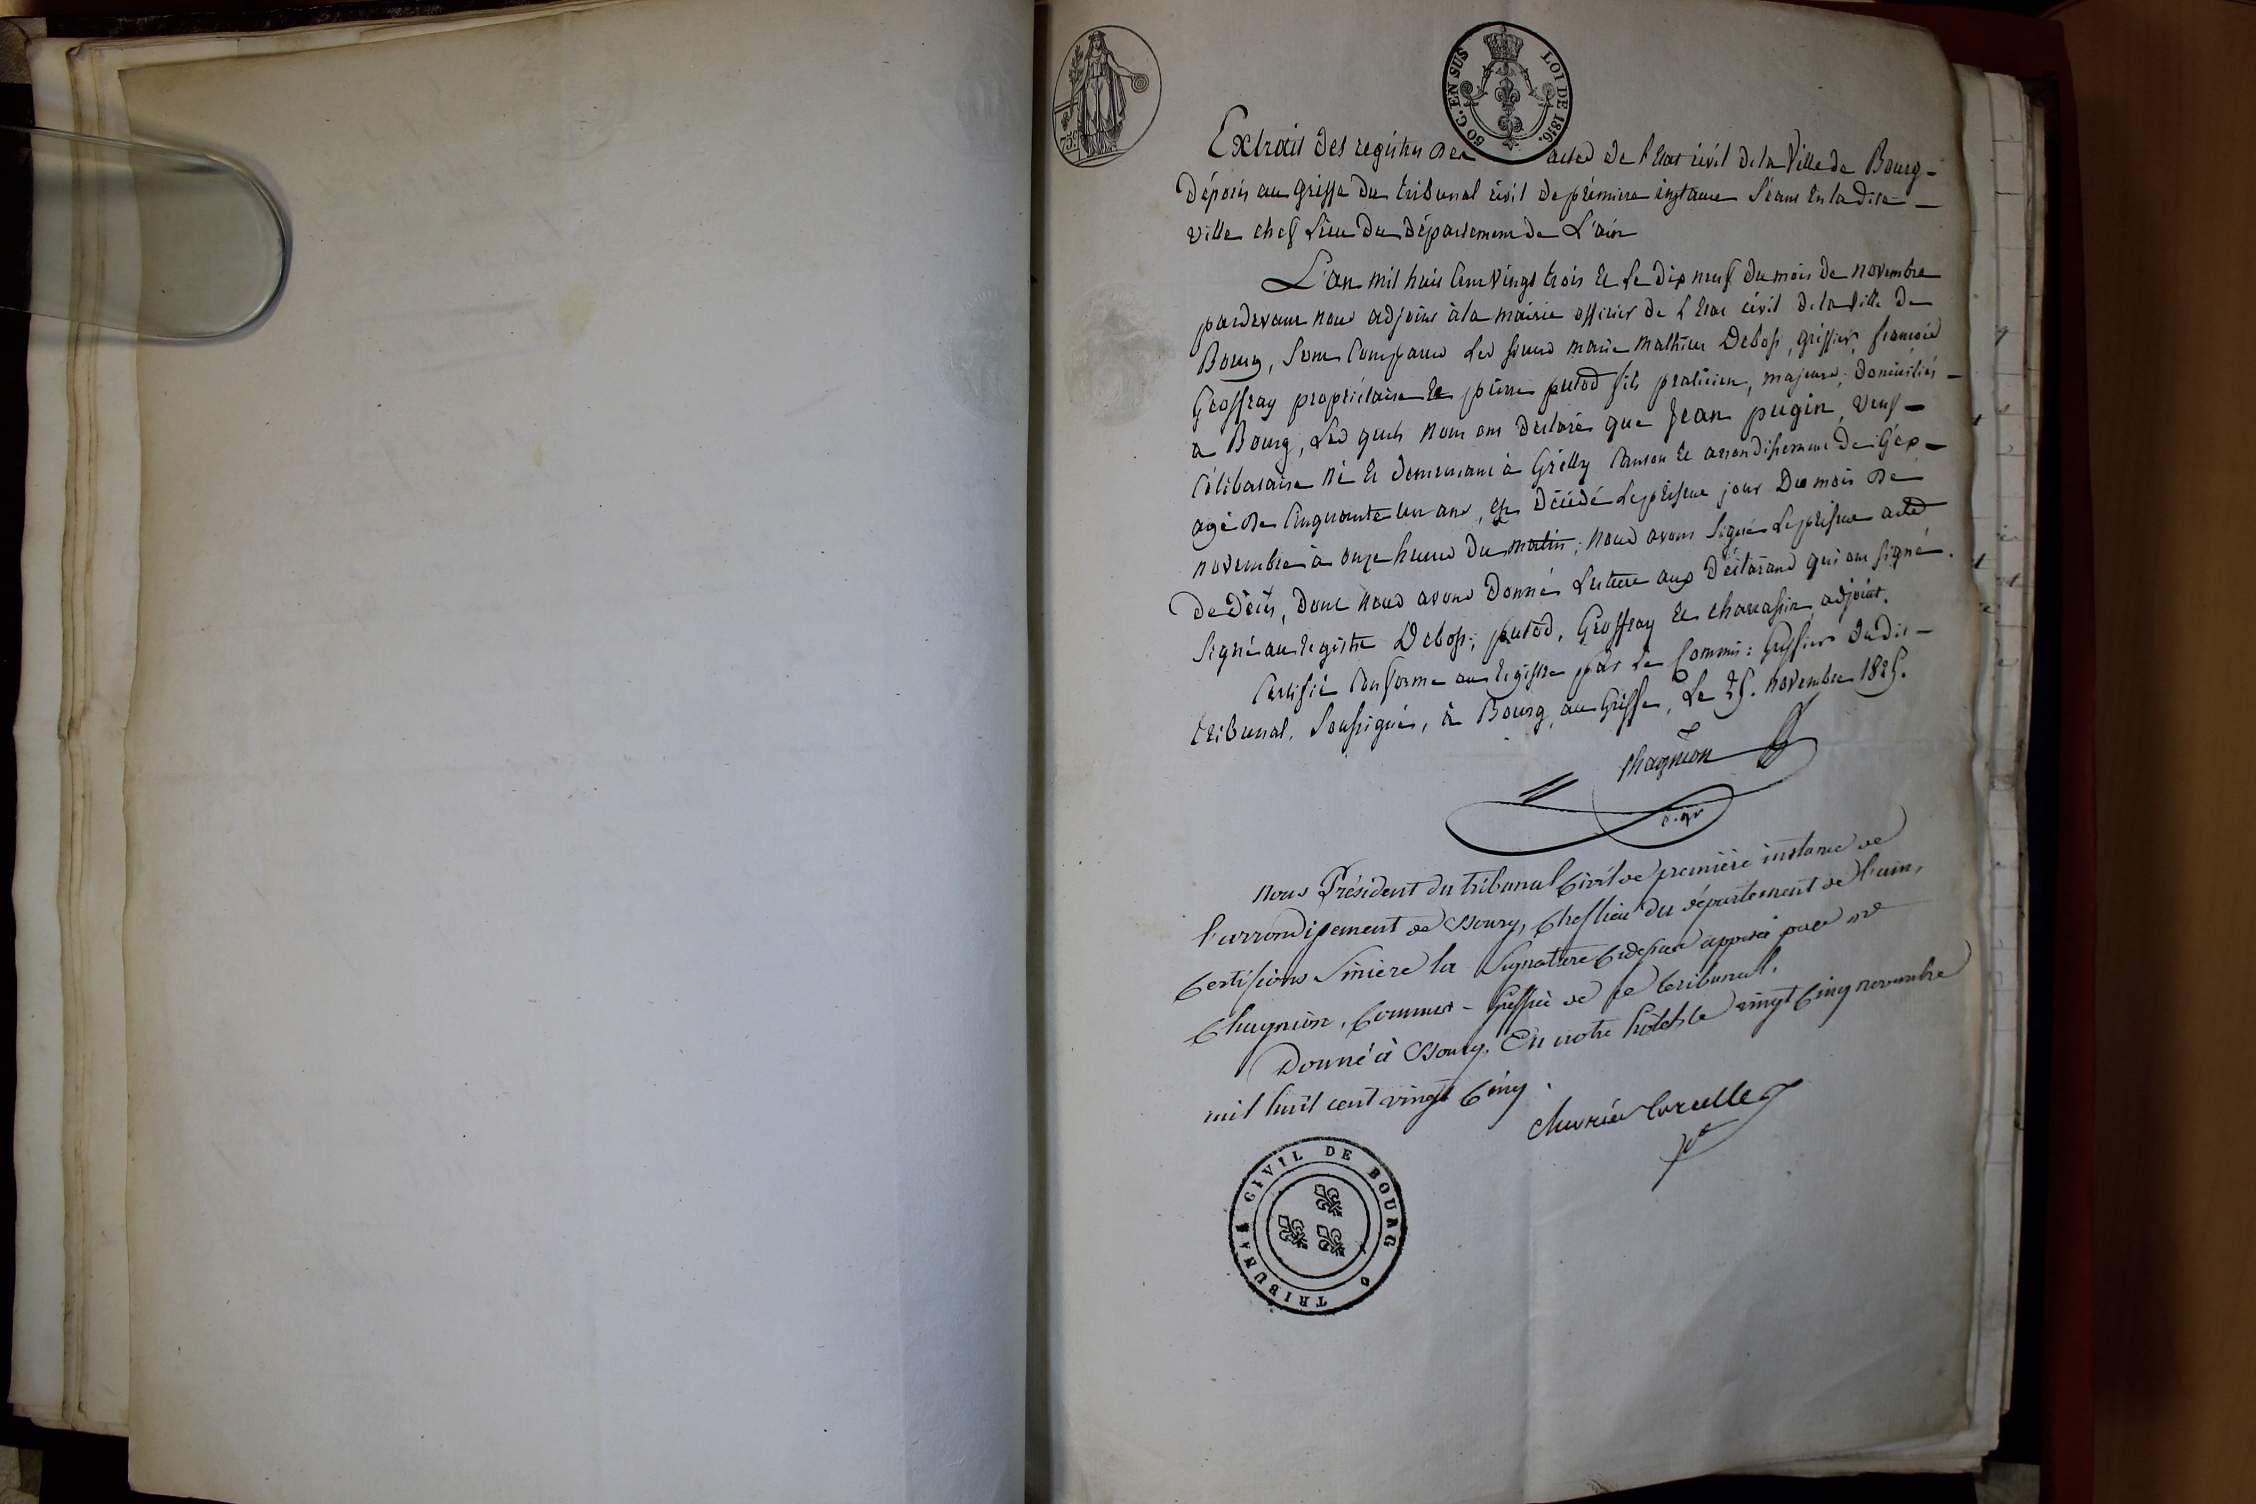 75c.
50 C. EN SUS LOI DE 1816.
Extrait des registres des actes de l'Etat civil de la Ville de Bourg-
Déposés au Greffe du tribunal civil de première instance séant en la dite-
ville chef lieu du département de L'ain
L'an mil huit cent vingt trois et le dix neuf du mois de novembre
pardevant nous adjoint à la mairie officier de l'Etat civil de la ville de
Bourg, sont comparus les sieurs marie mathieu Debost, greffier, françois
Geoffray propriétaire et pierre putod fils praticien, majeurs, domiciliés-
a Bourg, Les quels nous ont déclaré que Jean pugin, veuf-
Célibataire né et demeurant à Grilly canton et arrondissement de Gex-
agé de cinquante un ans, est décédé le présent jour du mois de
novembre à onze heures du matin; nous avons signé le présent acte
de décès, dont nous avons donné lecture aux déclarans qui ont signé.
Signé au registre Debost; putod, Geoffray et chavassin adjoint.
Certifié conforme au registre par le Commis: Greffier dudit-
tribunal, soussigné, à Bourg, au Greffe, le 25. novembre 1825.
Chagnion
c. gr
nous Président du tribunal Civil de première instance de
l'arrondissement de Bourg, Chef lieu du département de l'ain,
Certifions Sincère la Signature Cidessus apposée par me
Chagnion, Commis-Greffier de ce tribunal.
Donné à Bourg, En notre hôtel le vingt Cinq novembre
mil huit cent vingt Cinq.
chevrier Corcelle
pt
TRIBUNAL CIVIL DE BOURG